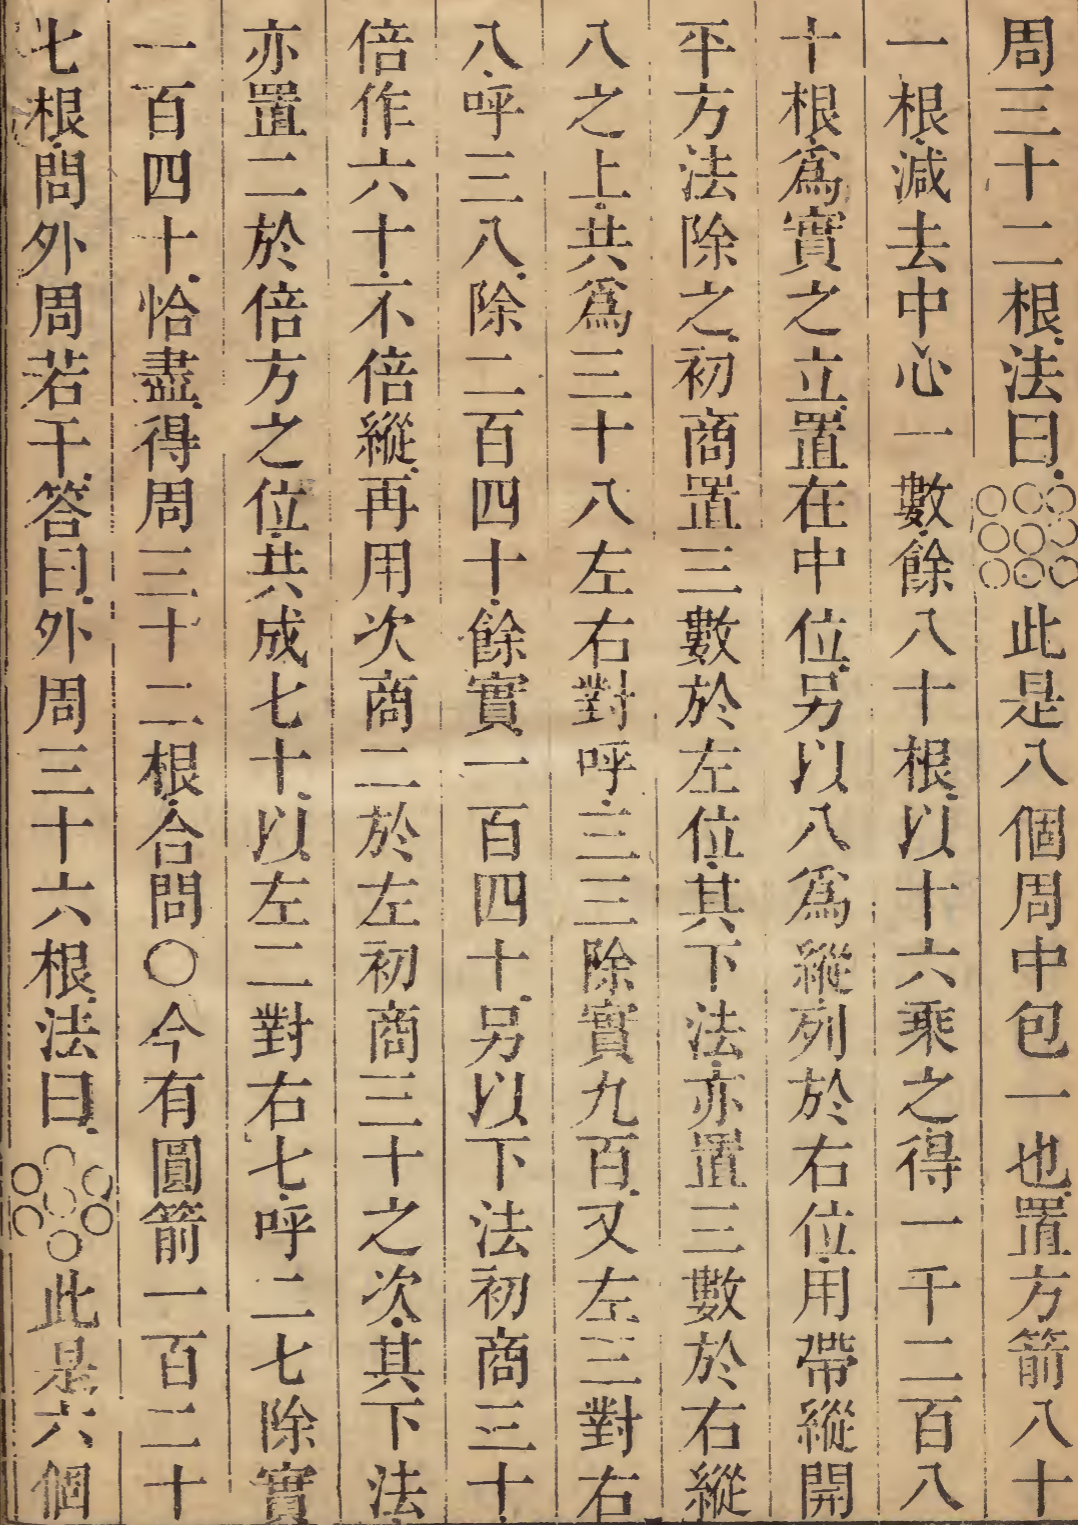 周三十二根法曰此是八個周中包一也置方箭八十
一根減去中心一數餘八十根以十六乘之得一千二百八
十根爲實之立置在中位另以八爲縱列於右位用帶縱開
平方法除之初商置三數於左位其下法亦置三數於右縱
八之上共爲三十八左右對呼三三除實九百又左三對右
八呼三八除二百四十餘實一百四十另以下法初商三十
倍作六十不倍縱再用次商二於左初商三十之次其下法
亦置二於倍方之位共成七十以左二對右七呼二七除實
一百四十恰盡得周三十二根合問○今有圓箭一百二十
七根問外周若干答曰外周三十六根法曰此是六個